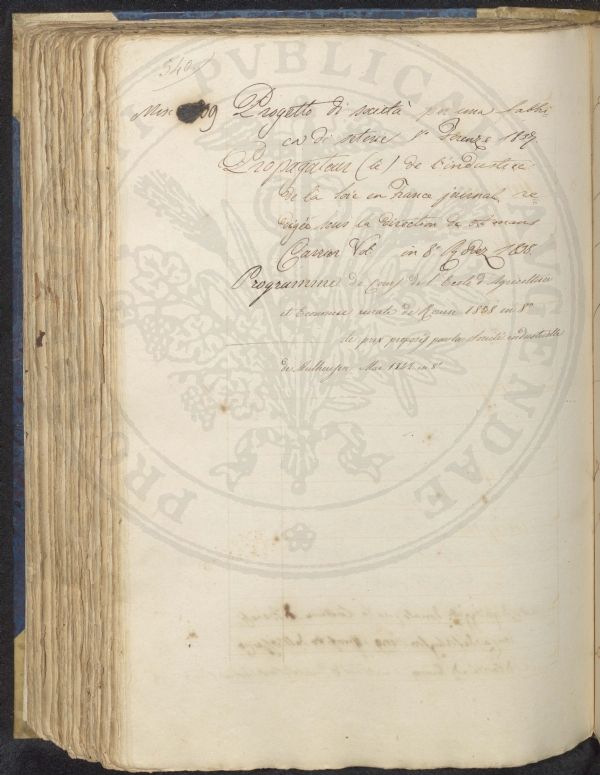 540
Misc 09 Progetto di società per una fabbri
ca di seterie Firenze 1837
Propagateur (le) de l'industrie
de la Soie en France journal re
digée sous la direction de Amans
Carrier Vol. in 8° Rodez 1838.
Programme de Cours de l'Ecole d'Agriculture
et Economie rurale de 1838 in 8°
de prix proposés par la Société industrielle
de Mulhausen Mai 1842 in 8°
PUBLICA
PROVEHENDAE